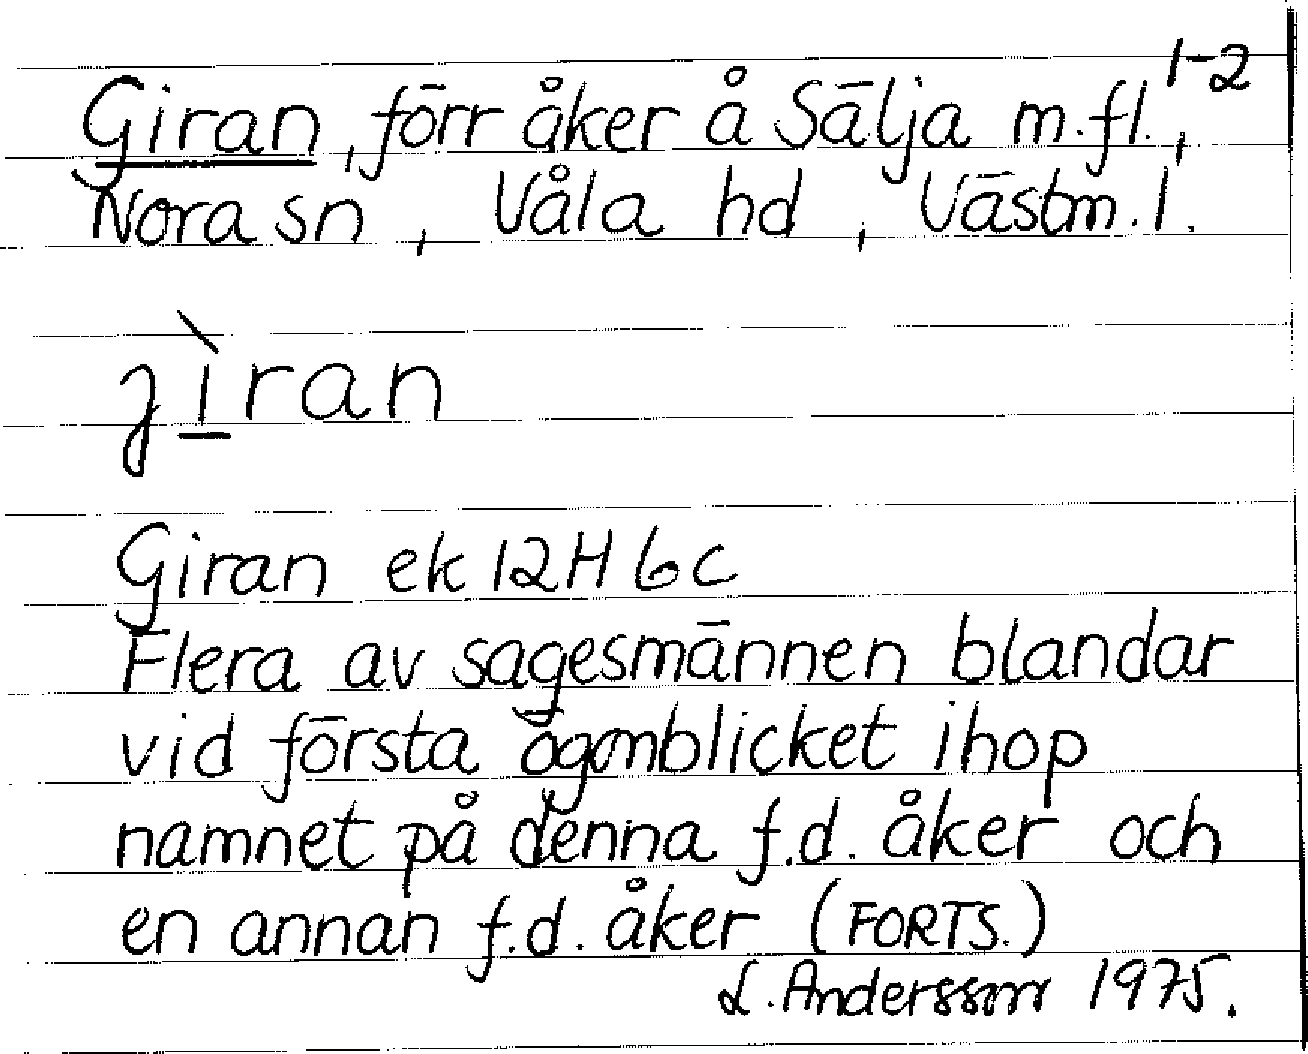 1-2
Giran, förr åker å Sälja m.fl.,
Nora sn, Våla hd, Västm. l.
jìran
Giran ek 12H 6c
Flera av sagesmännen blandar
vid första ögonblicket ihop
namnet på denna f.d. åker och
en annan f.d. åker (FORTS.)
L. Andersson 1975.